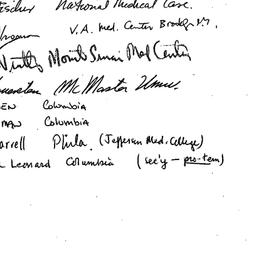 National Medical Care.
V.A. Med. Center Brooklyn N.Y.
Mount Sinai Med Center
McMaster Univ.
EN Columbia
MAN Columbia
arrell Phila. (Jefferson Med. College)
Leonard Columbia (sec'y – pro-tem)